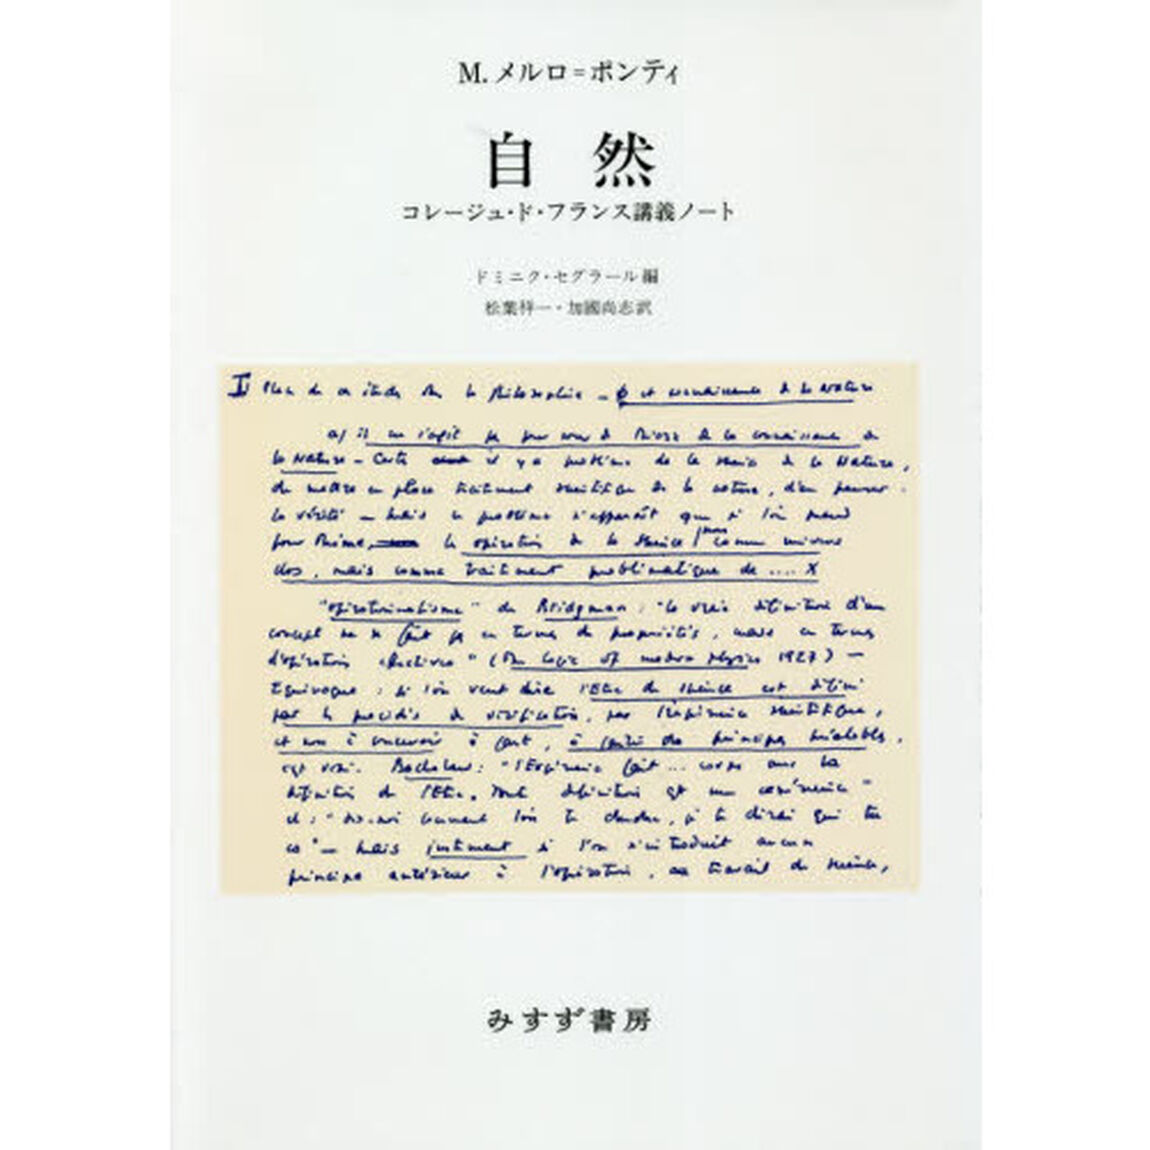 M. メルロ=ポンティ
自然
コレージュ・ド・フランス講義ノート
ドミニク・セグラール編
松葉祥一・加國尚志訳
II Plan de ces études sur la philosophie – et connaissance de la Nature
a) il ne s'agit pas pour nous de de la connaissance de
la Nature – Certes il y a problème de la de la Nature,
de mettre en place traitement scientifique de la nature, d'en penser
la vérité – mais le problème n'apparaît que si l'on prend
pour thème, l'opération de la science comme univers
clos, mais comme traitement problématique de .... X
"opérationnalisme" de Bridgman : "la vraie définition d'un
concept ne se fait pas en termes de propriétés, mais en termes
d'opérations effectives" (The Logic of modern physics 1927) –
Equivoque : si l'on veut dire l'Etre de science est défini
par les procédés de vérification, par l'expérience scientifique,
et non à concevoir à part, à partir des principes préalables,
c'est vrai. Bachelard : "l'Expérience fait ... corps avec la
définition de l'Etre. Toute définition est une expérience"
id : "Dis-moi comment l'on te cherche, je te dirai qui tu
es" – Mais justement si l'on n'introduit aucun
principe antérieur à l'opération, au travail de science,
みすず書房